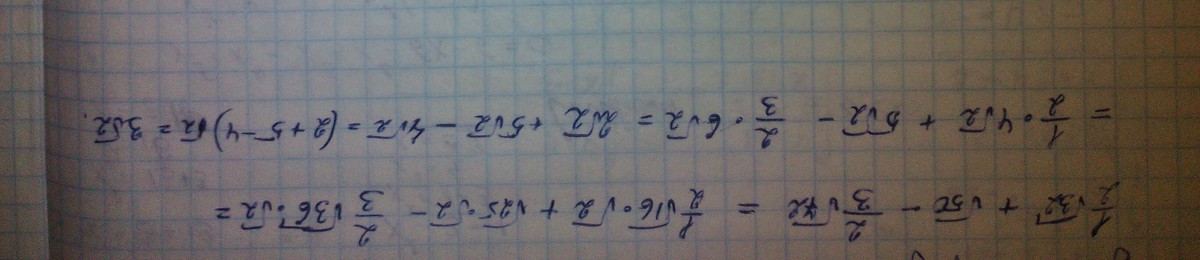 1/2 √32 + √50 - 2/3 √72 = 1/2 √16 · √2 + √25 · √2 - 2/3 √36 · √2 =
= 1/2 · 4√2 + 5√2 - 2/3 · 6√2 = 2√2 + 5√2 - 4√2 = (2+5-4)√2 = 3√2.